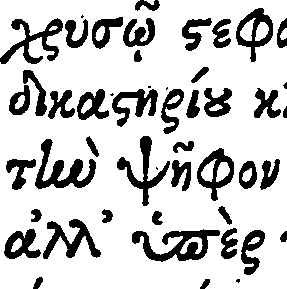 χρυσῷ στεφα
δικαστηρίου κ
τὴν ψῆφον
ἀλλ' ὑπὲρ